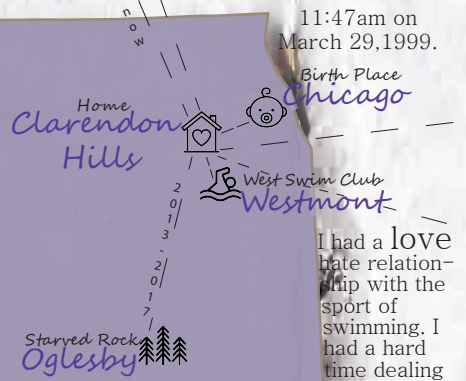 now
11:47am on
March 29,1999.
Birth Place
Chicago
Home
Clarendon
Hills
West Swim Club
Westmont
2013-2017
Starved Rock
Oglesby
I had a love
hate relation-
ship with the
sport of
swimming. I
had a hard
time dealing